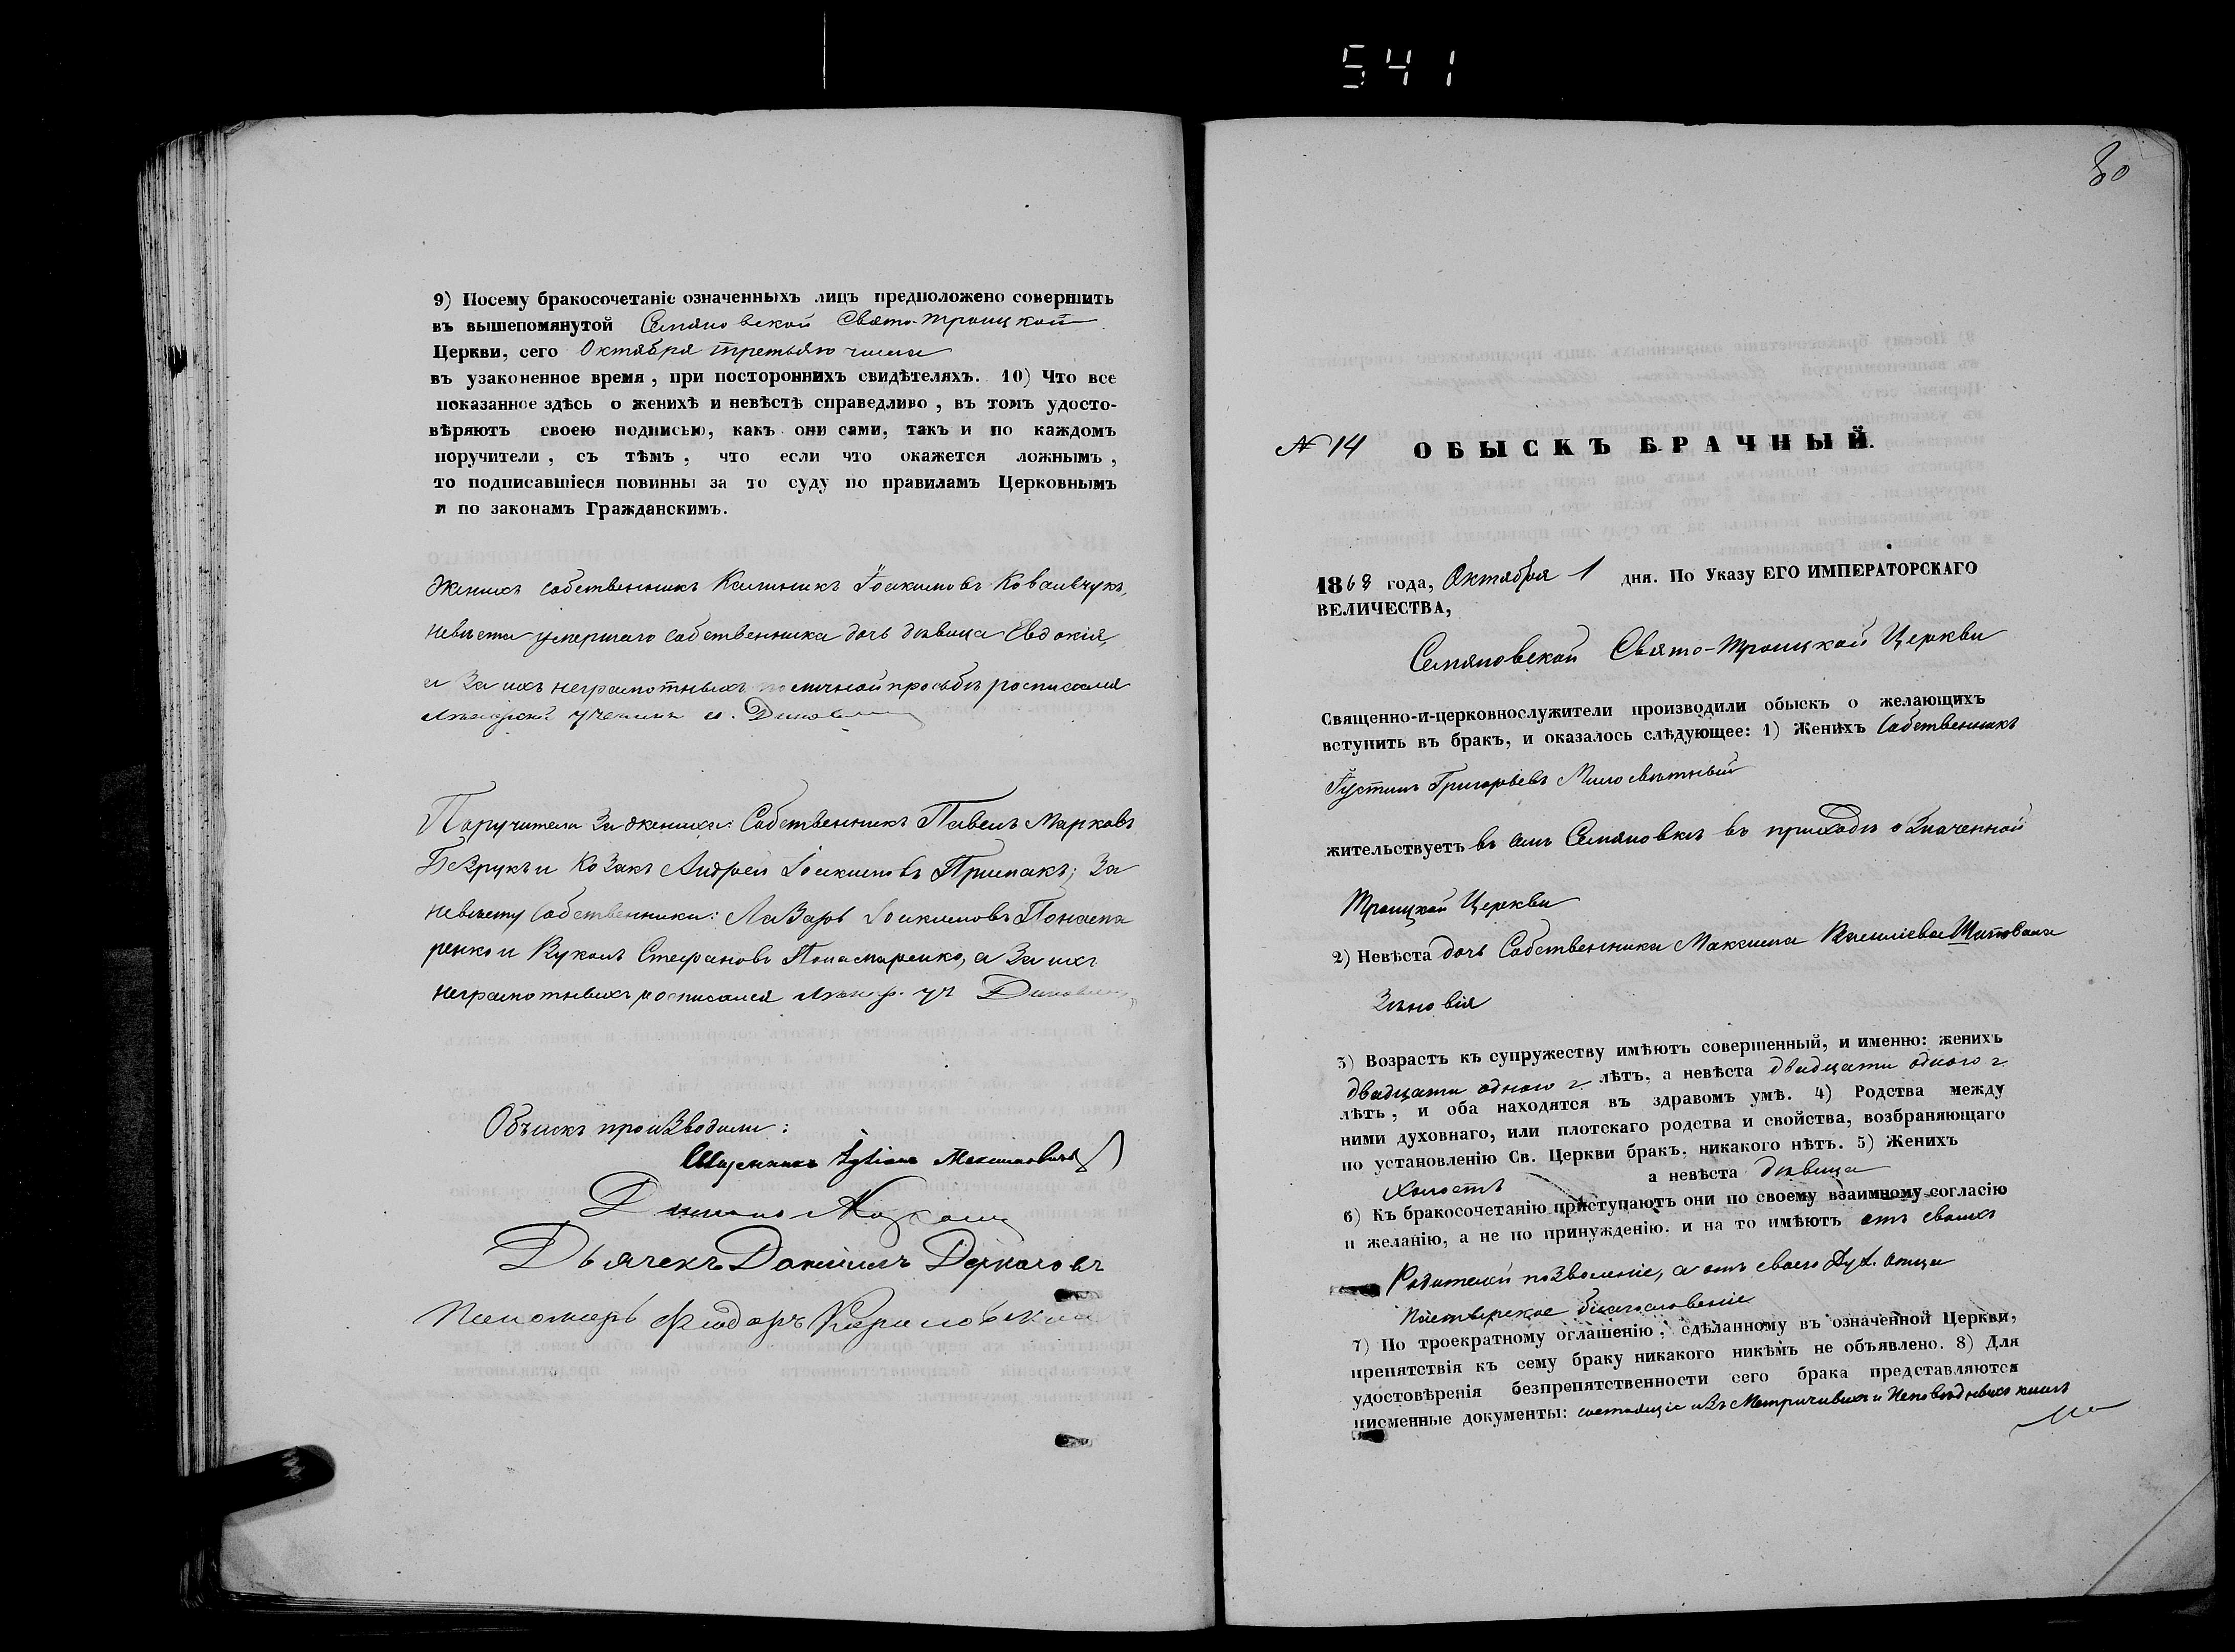 541
9) Посему бракосочетаніе означенныхъ лицъ предположено совершить
въ вышепомянутой Семяновской Свято-Троицкой
Церкви, сего Октября третьяго числа
въ узаконенное время, при постороннихъ свидѣтеляхъ. 10) Что все
показанное здѣсь о женихѣ и невѣстѣ справедливо, въ томъ удосто-
вѣряютъ своею подписью, какъ они сами, такъ и по каждомъ
поручители, съ тѣмъ, что если что окажется ложнымъ,
то подписавшіеся повинны за то суду по правиламъ Церковнымъ
и по законамъ Гражданскимъ.
Женихъ собственникъ Калиникъ Іоакимовъ Ковальчукъ,
невѣста умершаго собственника дочь дѣвица Евдокія,
а за ихъ неграмотныхъ по личной прозьбѣ росписался
Поручители за жениха: Собственникъ Павелъ Марковъ
Безрукъ и Козакъ Андрей Іоакимовъ Примакъ; за
невѣсту собственники: Лазарь Іоакимовъ Понома
ренко и Вуколъ Стефановъ Пономаренко, а за ихъ
неграмотныхъ росписался
Обыскъ производили:
Священникъ Максимовичъ
Дьячекъ Даніилъ
Пономарь Феодоръ
80
№ 14 ОБЫСКЪ БРАЧНЫЙ.
1868 года, Октября 1 дня. По Указу ЕГО ИМПЕРАТОРСКАГО
ВЕЛИЧЕСТВА,
Семяновской Свято-Троицкой Церкви
Священно-и-церковнослужители производили обыскъ о желающихъ
вступить въ бракъ, и оказалось слѣдующее: 1) Женихъ Собственникъ
Іустинъ Григорьевъ
жительствуетъ въ селѣ Семяновкѣ въ приходѣ означенной
Троицкой Церкви
2) Невѣста дочь Собственника Максима Шаповала
Зѣновія
3) Возрастъ къ супружеству имѣютъ совершенный, и именно: женихъ
двадцати одного г. лѣтъ, а невѣста двадцати одного г.
лѣтъ, и оба находятся въ здравомъ умѣ. 4) Родства между
ними духовнаго, или плотскаго родства и свойства, возбраняющаго
по установленію Св. Церкви бракъ, никакого нѣтъ. 5) Женихъ
холостъ а невѣста дѣвица
6) Къ бракосочетанію приступаютъ они по своему взаимному согласію
и желанію, а не по принужденію. и на то имѣютъ отъ своихъ
Родителей позволеніе, а отъ своего Дух. отца
Пастырское благословеніе
7) По троекратному оглашенію, сдѣланному въ означенной Церкви,
препятствія къ сему браку никакого никѣмъ не объявлено. 8) Для
удостовѣренія безпрепятственности сего брака представляются
писменные документы: состоящіе изъ Метричныхъ и Исповѣдныхъ книгъ